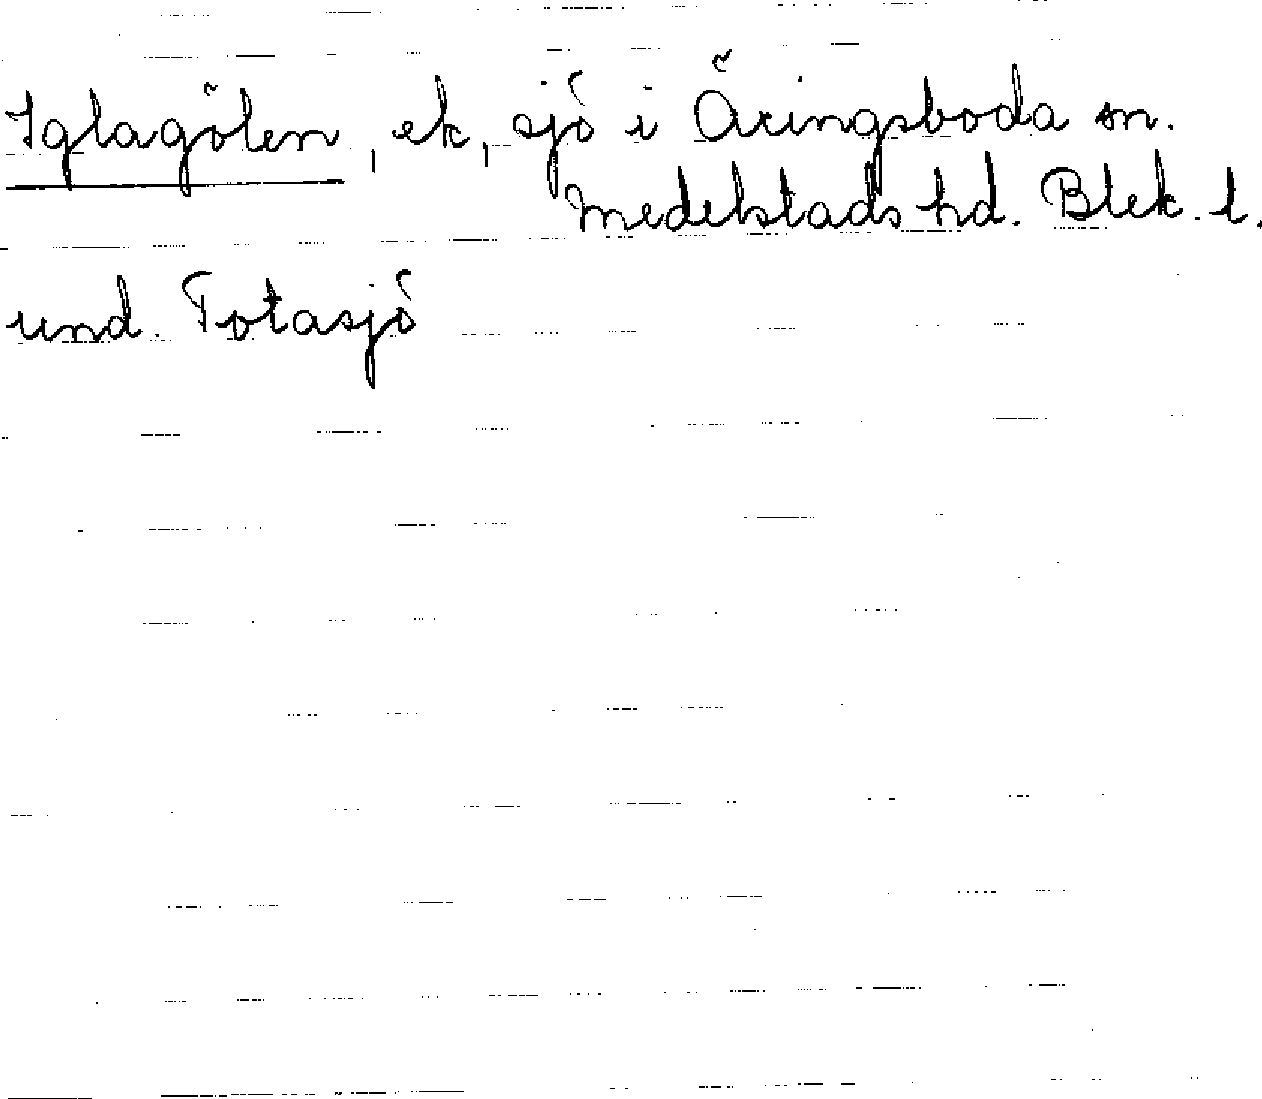 Iglagölen, ek, sjö i Öringsboda sn.
Medelstads hd. Blek. l.
und. Totasjö